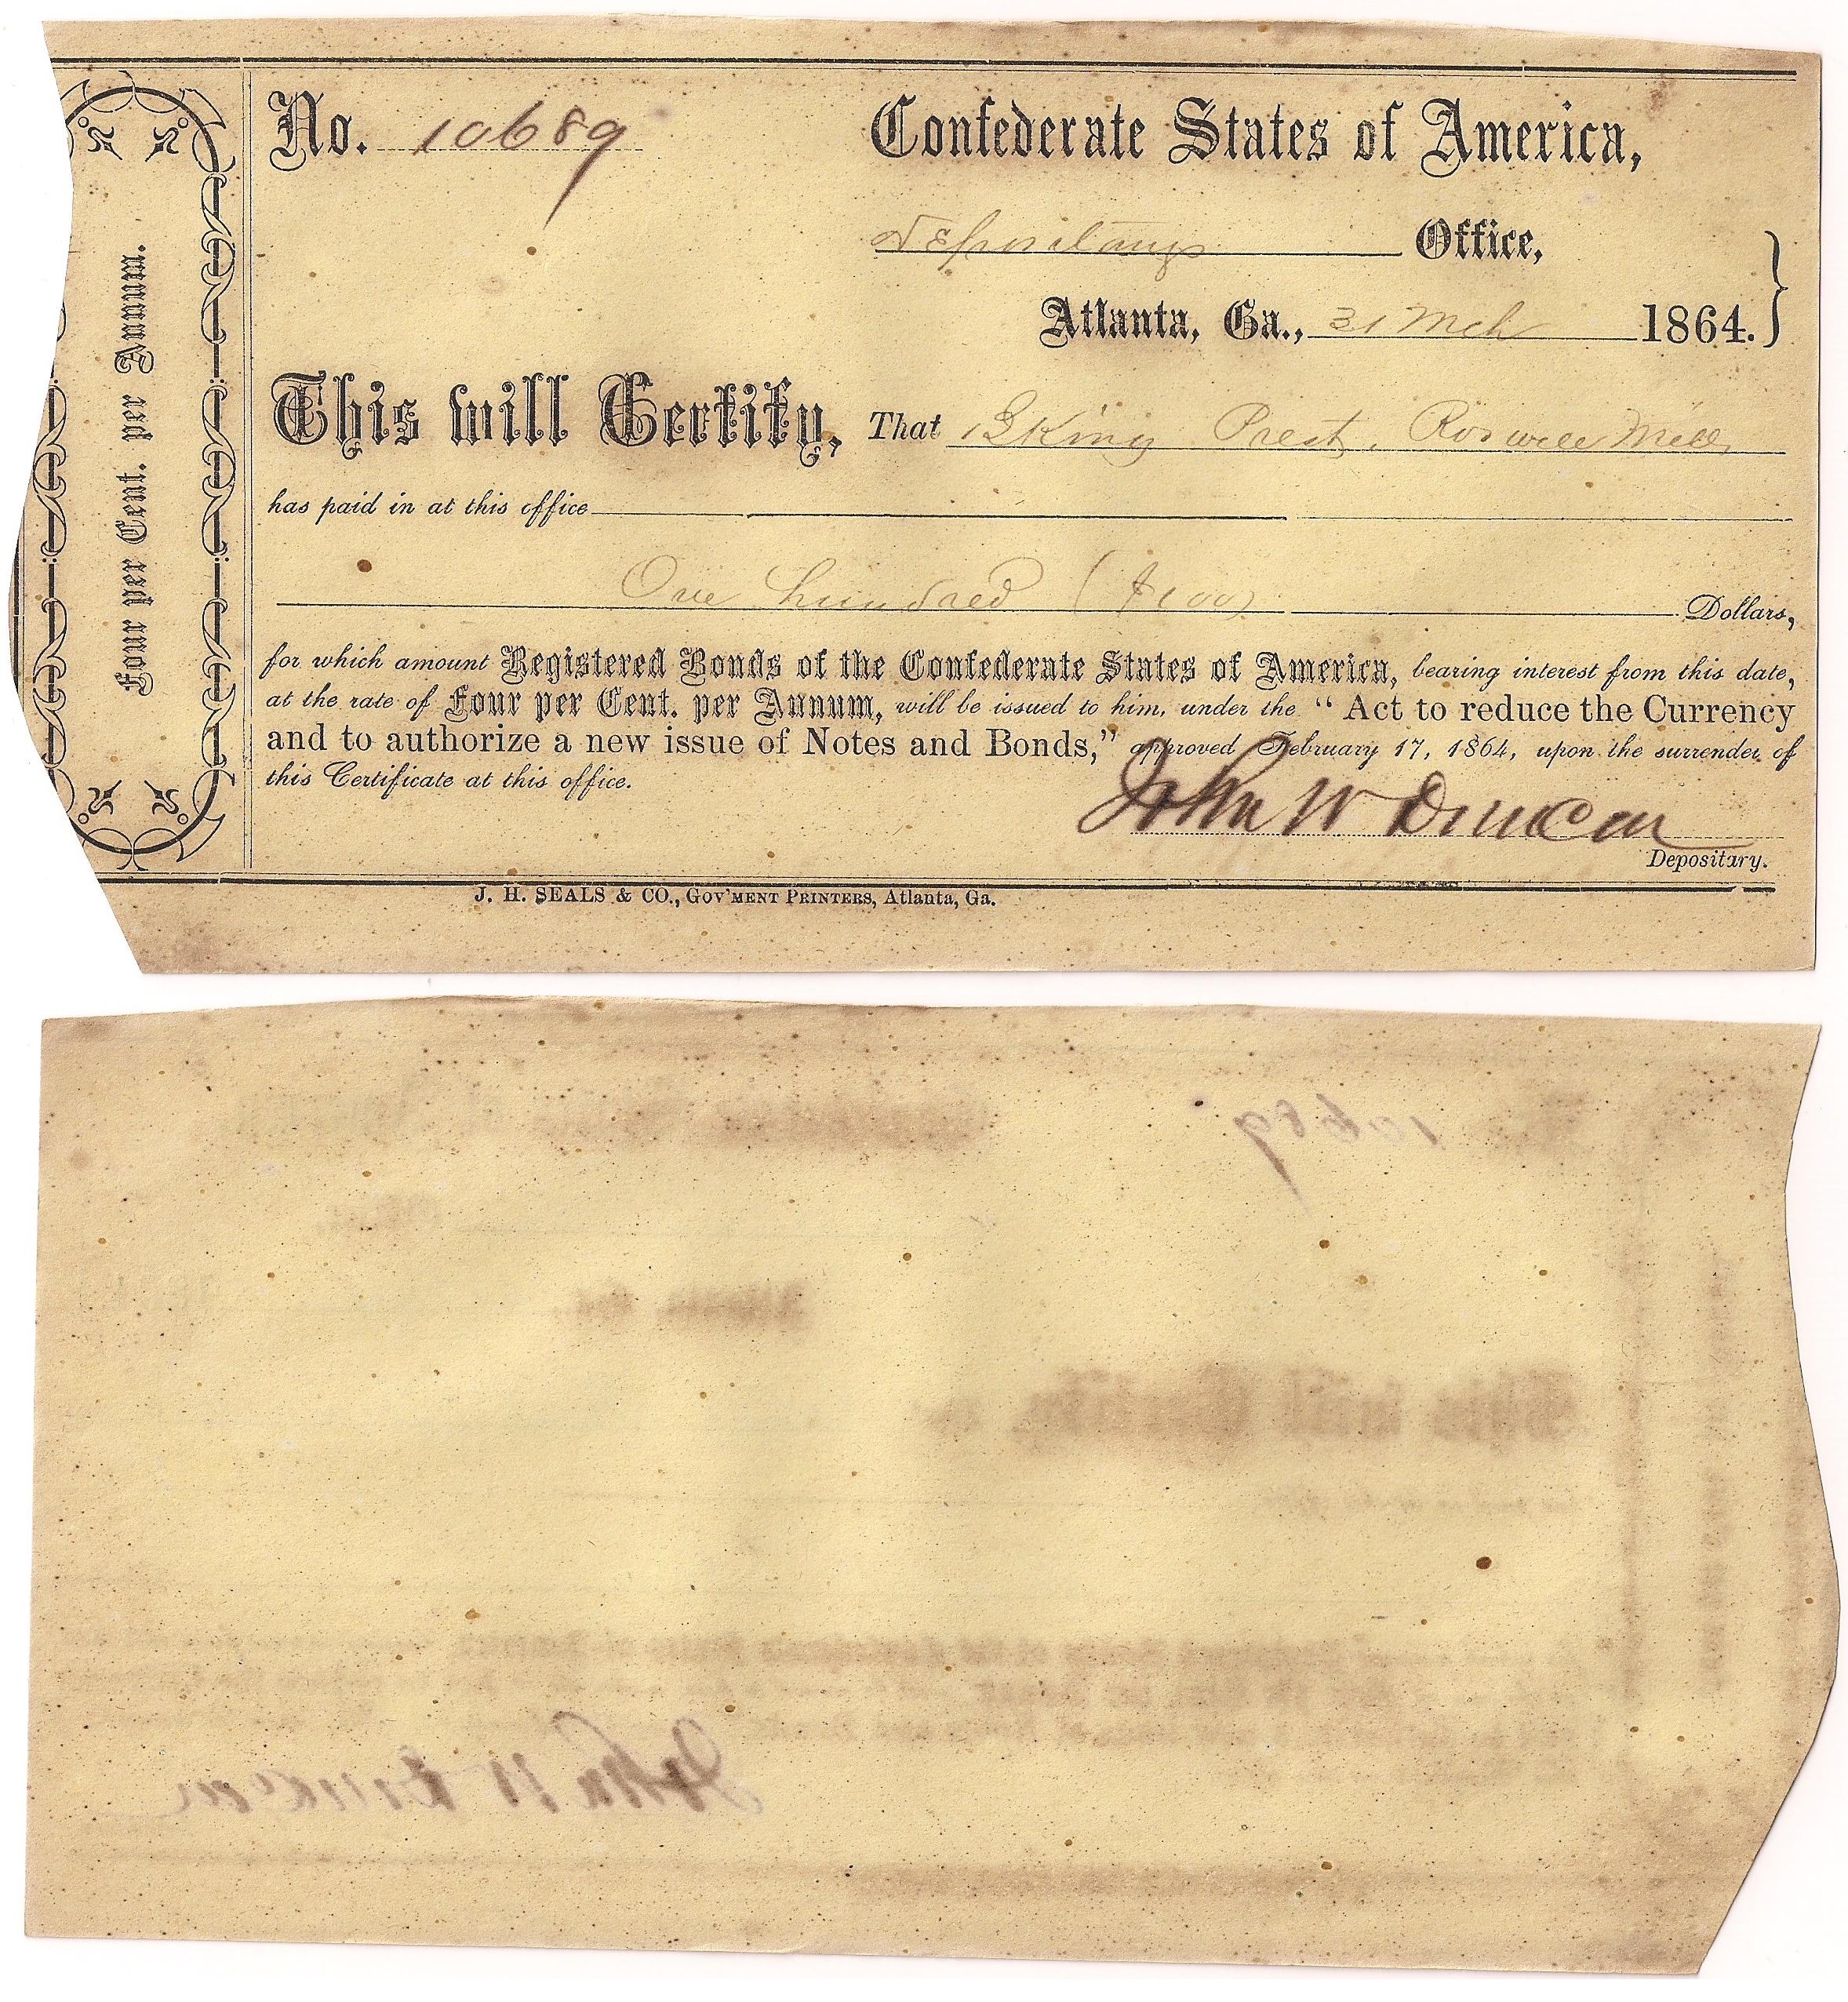 No. 10689
Confederate States of America,
Depositarys Office,
Atlanta, Ga., 31 Mch 1864.
This will Certify, That B King Prest. Roswell Mills
has paid in at this office
One hundred ($100) Dollars,
for which amount Registered Bonds of the Confederate States of America, bearing interest from this date,
at the rate of Four per Cent. per Annum, will be issued to him, under the "Act to reduce the Currency
and to authorize a new issue of Notes and Bonds," approved February 17, 1864, upon the surrender of
this Certificate at this office.
John W Duncan
Depositary.
J. H. SEALS & CO., GOV'MENT PRINTERS, Atlanta, Ga.
Four per Cent. per Annum.